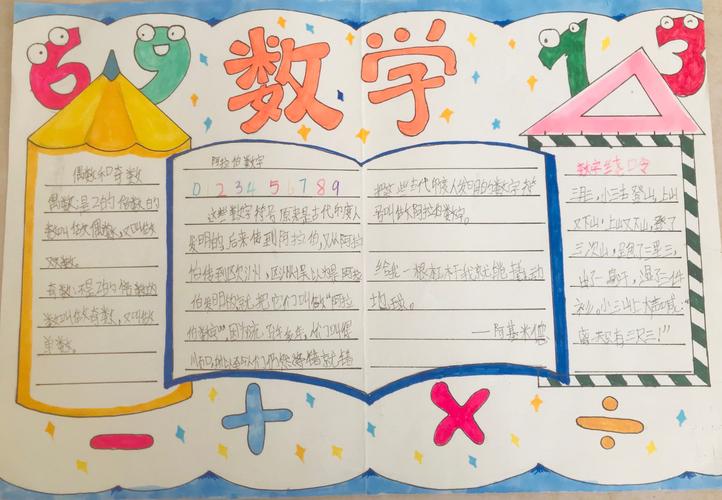 6 9 数学 1 3
偶数和奇数
偶数:是2的倍数的
数叫做偶数,又叫做
双数。
奇数:不是2的倍数的
数叫做奇数,又叫做
单数。
阿拉伯数字
0 1 2 3 4 5 6 7 8 9
这些数字符号原来是古代印度人
发明的,后来传到阿拉伯,又从阿拉
伯传到欧洲,欧洲人以为是阿拉
伯发明的,就把它们叫做“阿拉
伯数字”,因为流
所以至今人们仍然将错就错
把这些古代印度人发明的数字符
号叫做阿拉伯数字。
给我一根杠杆我就能撬动
地球。
——阿基米德
数字绕口令
三月三,小三去登山,上山
又下山,下山又上山,登了
三次山,跑了三里三,
出了一身汗,湿了三件
衫,小三山上大声喊:
“离天只有三尺三!”
－ ＋ × ÷